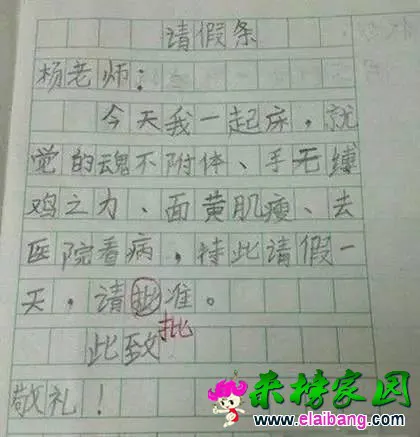 请假条
杨老师：
今天我一起床，就
觉的魂不附体、手无缚
鸡之力、面黄肌瘦、去
医院看病，特此请假一
天，请批准。
批
此致
敬礼！
来榜家园
www.elaibang.com